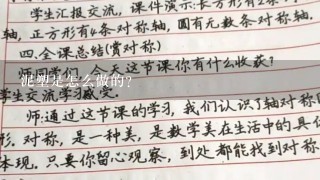 学生汇报交流，课件演示：长方形有2条
轴，正方形有4条对称轴，圆有无数条对称轴.
四.全课总结(赏对称)
今天这节课你有什么收获?
泥塑是怎么做的?
学生交流学习
师:通过这节课的学习，我们认识了轴对称
形. 对称，是一种美，是数学美在生活中的具
体现. 只要你留心观察，到处都能找到对称